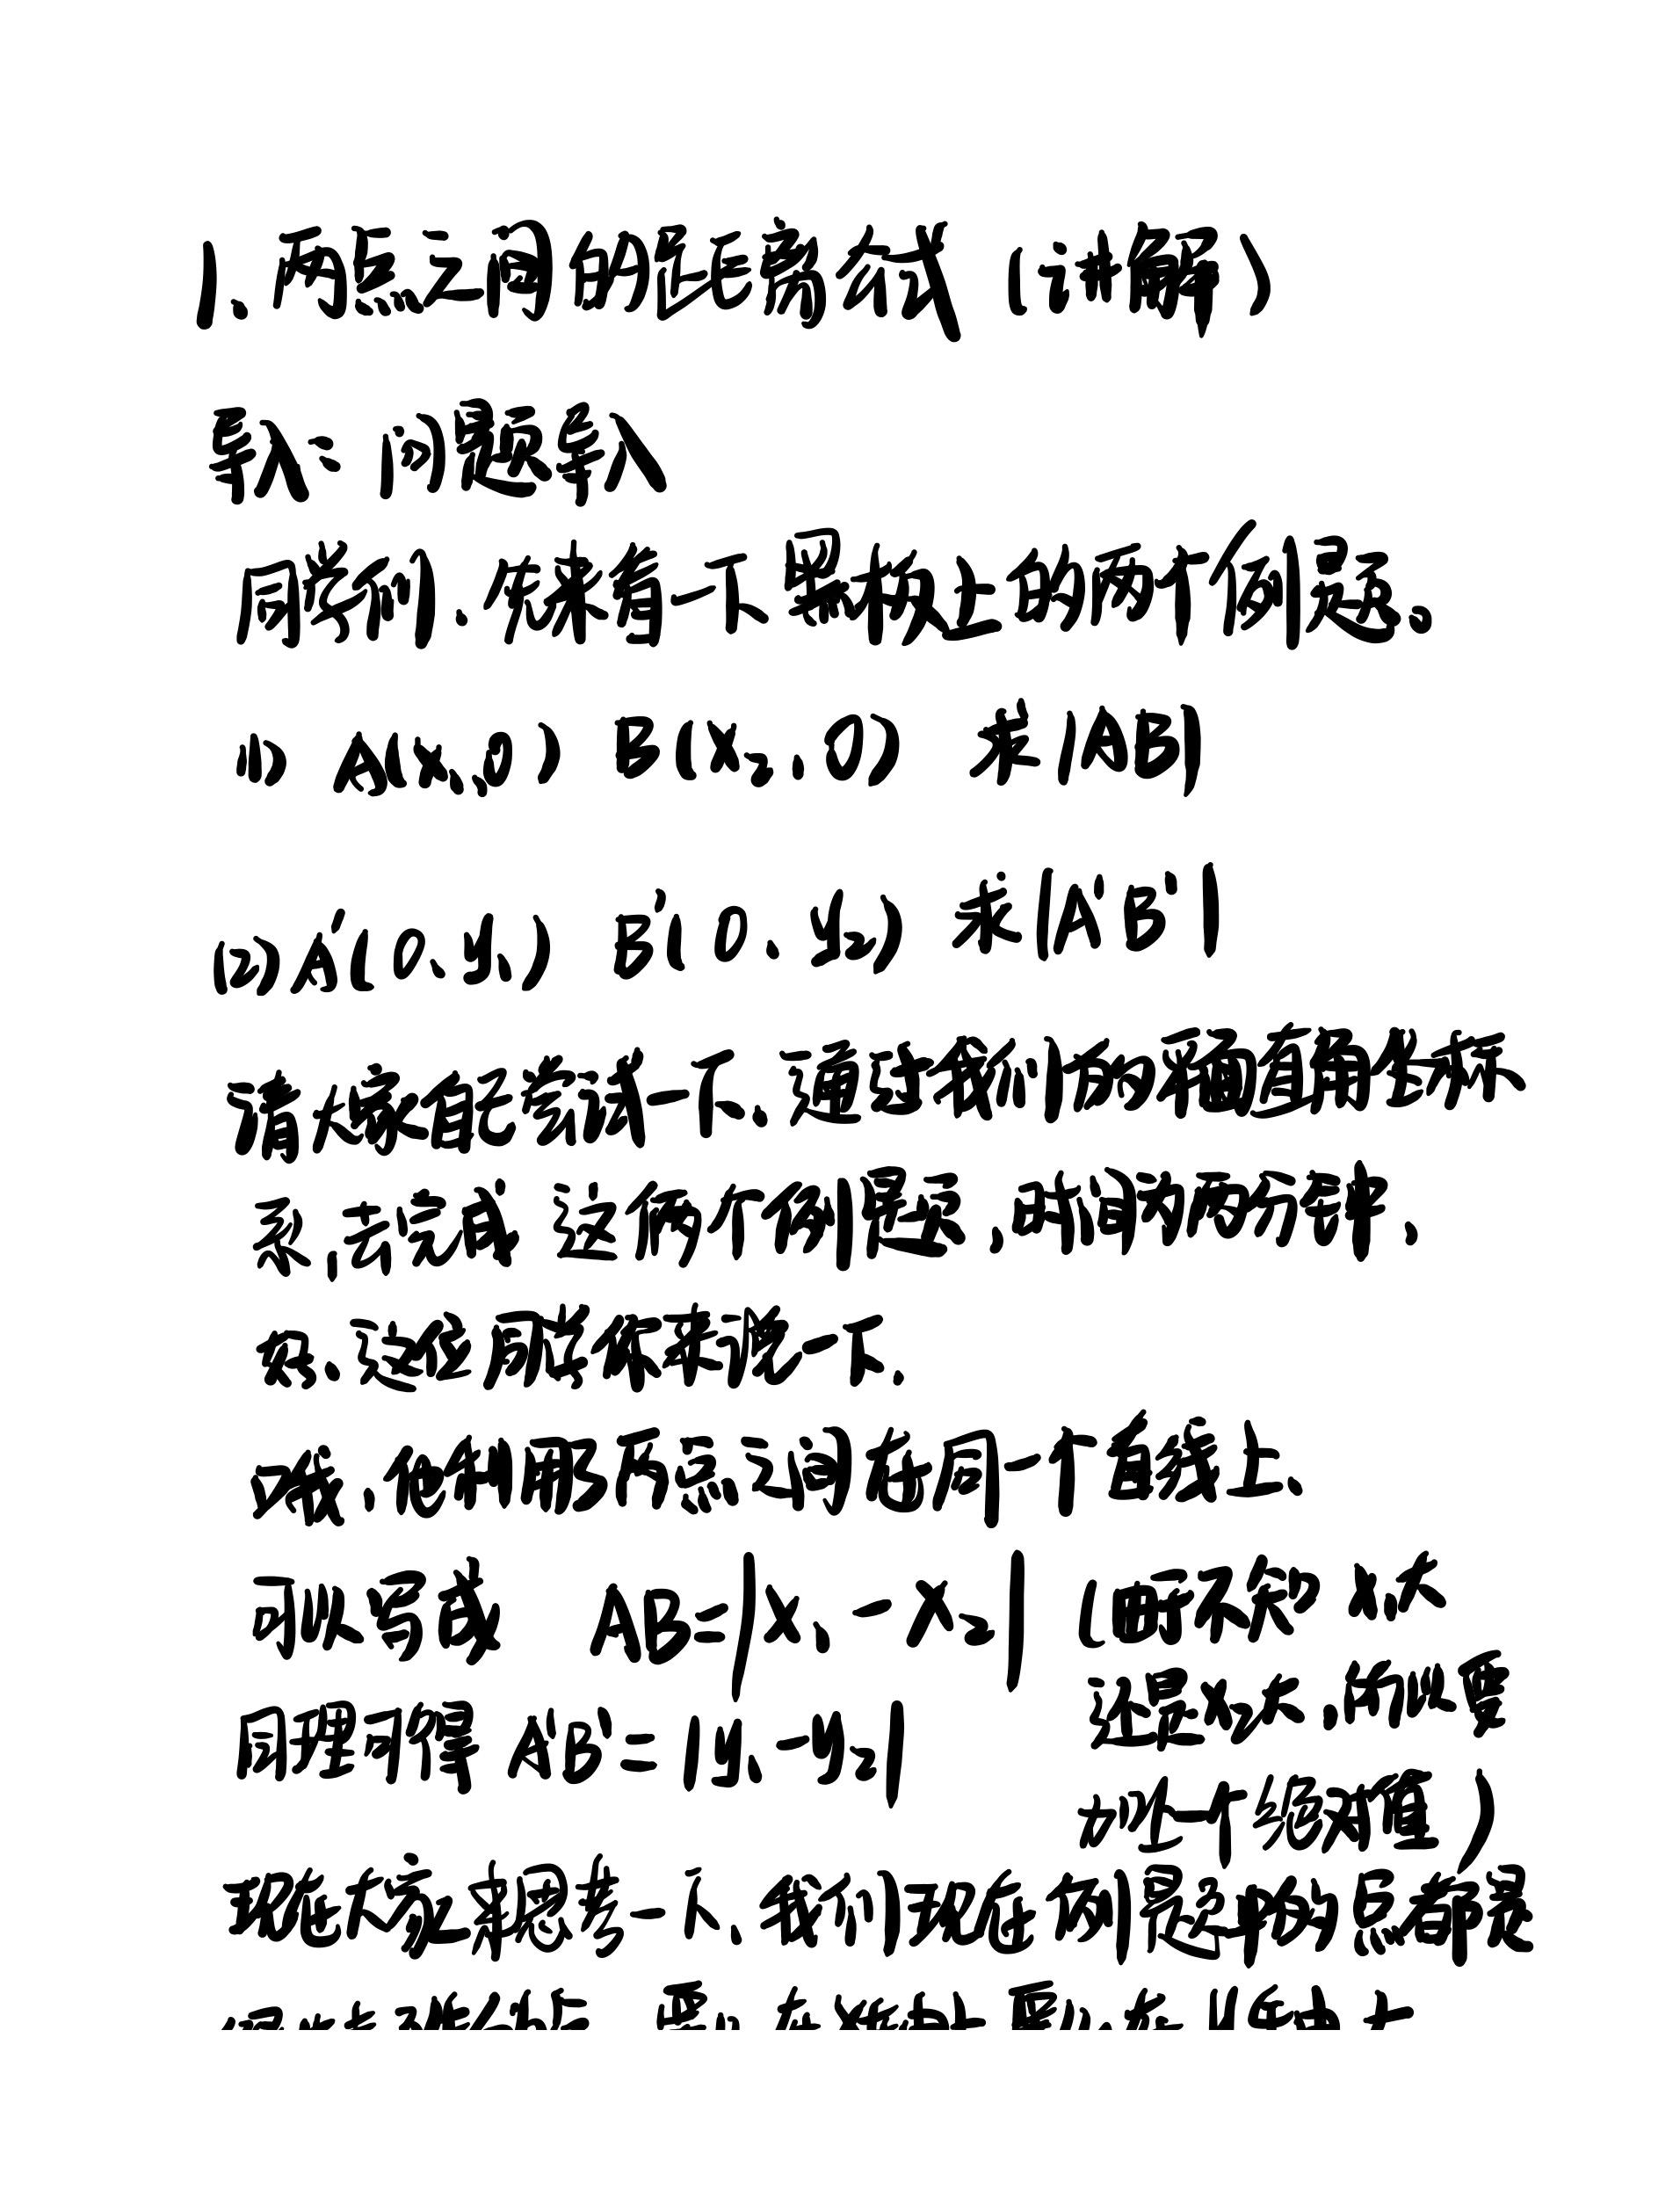 1、两点之间的距离公式（讲解）
导入：问题导入
同学们、先来看一下黑板上的两个例题。
(1) A(x₁,0) B(x₂,0) 求|AB|
(2) A'(0,y₁) B'(0,y₂) 求|A'B'|
请大家自己尝试一下、通过我们的平面直角坐标
系,去完成这俩个例题,时间为两分钟,
好、这位同学你来说一下.
哦、他利用了两点之间在同一个直线上、
可以写成 AB=|x₁-x₂| (由于不知 x₁大
还是x₂大,所以要
加上一个绝对值)
同理可得 A'B'=|y₁-y₂|
现在大家来思考一下、我们现在例题中的点都是